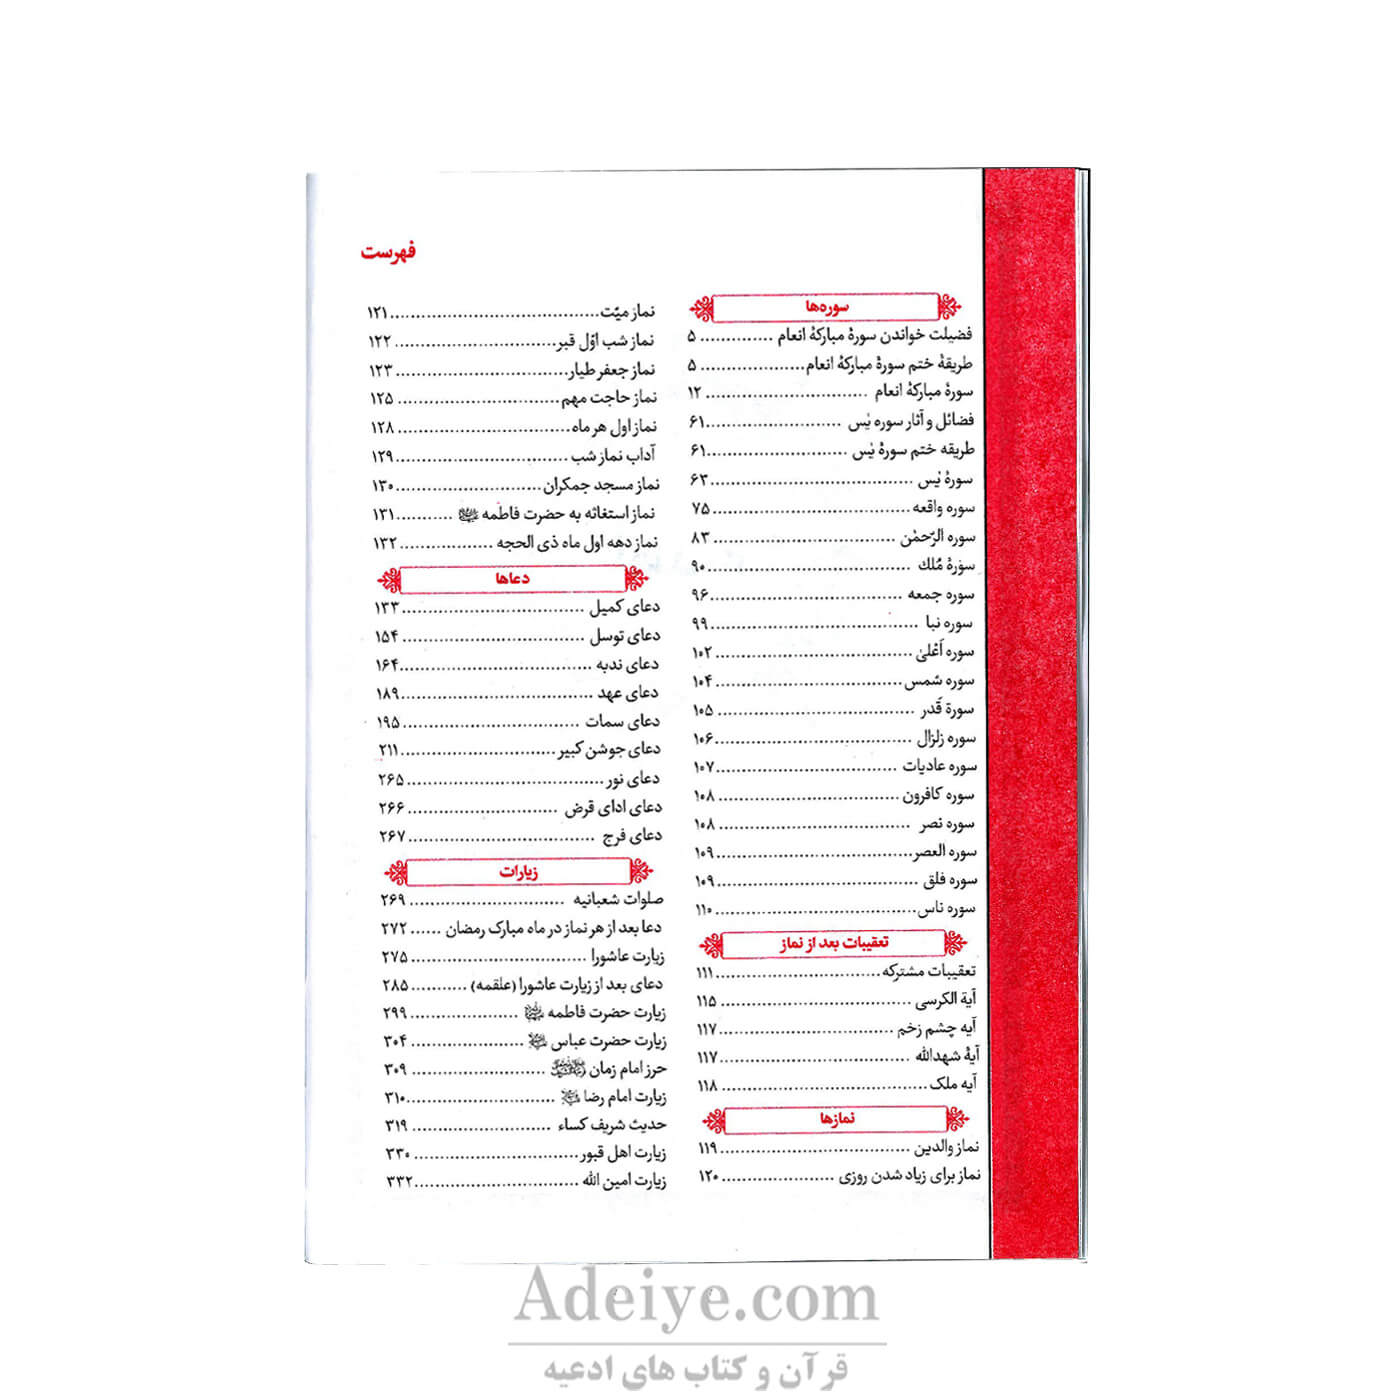 فهرست
سوره‌ها
فضیلت خواندن سورۀ مبارکۀ انعام .............. ۵
طریقۀ ختم سورۀ مبارکۀ انعام.................... ۵
سورۀ مبارکۀ انعام ................................ ۱۲
فضائل و آثار سوره یٰس ..........................۶۱
طریقه ختم سورۀ یٰس ...........................۶۱
سورۀ یٰس ....................................... ۶۳
سوره واقعه...................................... ۷۵
سوره الرّحمٰن ................................... ۸۳
سورۀ مُلك ....................................... ۹۰
سوره جمعه .....................................۹۶
سوره نبا ........................................۹۹
سوره اَعْلیٰ...................................... ۱۰۲
سوره شمس.................................... ۱۰۴
سورة قَدر ...................................... ۱۰۵
سوره زلزال......................................۱۰۶
سوره عادیات ...................................۱۰۷
سوره کافرون................................... ۱۰۸
سوره نصر ..................................... ۱۰۸
سوره العصر.....................................۱۰۹
سوره فلق ......................................۱۰۹
سوره ناس.......................................۱۱۰
تعقیبات بعد از نماز
تعقیبات مشترکه................................۱۱۱
آیة الکرسی ..................................... ۱۱۵
آیه چشم زخم ..................................۱۱۷
آیۀ شهدالله .....................................۱۱۷
آیه ملک........................................ ۱۱۸
نمازها
نماز والدین .....................................۱۱۹
نماز برای زیاد شدن روزی ......................۱۲۰
نماز میّت.........................................۱۲۱
نماز شب اوّل قبر............................... ۱۲۲
نماز جعفر طیار..................................۱۲۳
نماز حاجت مهم................................ ۱۲۵
نماز اول هر ماه................................. ۱۲۸
آداب نماز شب ..................................۱۲۹
نماز مسجد جمکران............................۱۳۰
نماز استغاثه به حضرت فاطمه ...........۱۳۱
نماز دهه اول ماه ذی الحجه ..................۱۳۲
دعاها
دعای کمیل ...................................۱۳۳
دعای توسل ................................... ۱۵۴
دعای ندبه .....................................۱۶۴
دعای عهد .....................................۱۸۹
دعای سمات .................................. ۱۹۵
دعای جوشن کبیر..............................۲۱۱
دعای نور...................................... ۲۶۵
دعای ادای قرض ............................. ۲۶۶
دعای فرج .....................................۲۶۷
زیارات
صلوات شعبانیه .............................. ۲۶۹
دعا بعد از هر نماز در ماه مبارک رمضان ...... ۲۷۲
زیارت عاشورا.................................. ۲۷۵
دعای بعد از زیارت عاشورا (علقمه) ...........۲۸۵
زیارت حضرت فاطمه ..................... ۲۹۹
زیارت حضرت عباس ...................... ۳۰۴
حرز امام زمان .......................... ۳۰۹
زیارت امام رضا .............................۳۱۰
حدیث شریف کساء ........................... ۳۱۹
زیارت اهل قبور................................ ۳۳۰
زیارت امین الله ................................۳۳۲
Adeiye.com
قرآن و کتاب های ادعیه